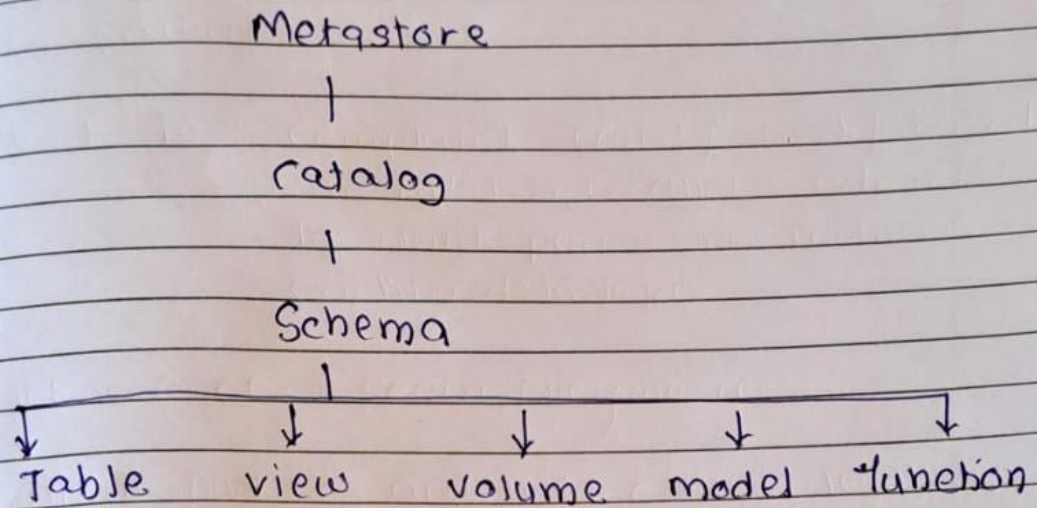 Metastore
Catalog
Schema
Table view volume model function